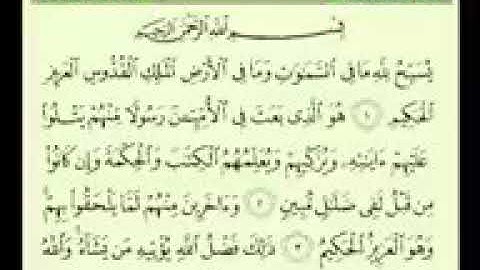 بِسْمِ ٱللَّهِ ٱلرَّحْمَٰنِ ٱلرَّحِيمِ
يُسَبِّحُ لِلَّهِ مَا فِى ٱلسَّمَٰوَٰتِ وَمَا فِى ٱلْأَرْضِ ٱلْمَلِكِ ٱلْقُدُّوسِ ٱلْعَزِيزِ
ٱلْحَكِيمِ ١ هُوَ ٱلَّذِى بَعَثَ فِى ٱلْأُمِّيِّـۧنَ رَسُولًا مِّنْهُمْ يَتْلُوا۟
عَلَيْهِمْ ءَايَٰتِهِۦ وَيُزَكِّيهِمْ وَيُعَلِّمُهُمُ ٱلْكِتَٰبَ وَٱلْحِكْمَةَ وَإِن كَانُوا۟
مِن قَبْلُ لَفِى ضَلَٰلٍ مُّبِينٍ ٢ وَءَاخَرِينَ مِنْهُمْ لَمَّا يَلْحَقُوا۟ بِهِمْ
وَهُوَ ٱلْعَزِيزُ ٱلْحَكِيمُ ٣ ذَٰلِكَ فَضْلُ ٱللَّهِ يُؤْتِيهِ مَن يَشَآءُ وَٱللَّهُ